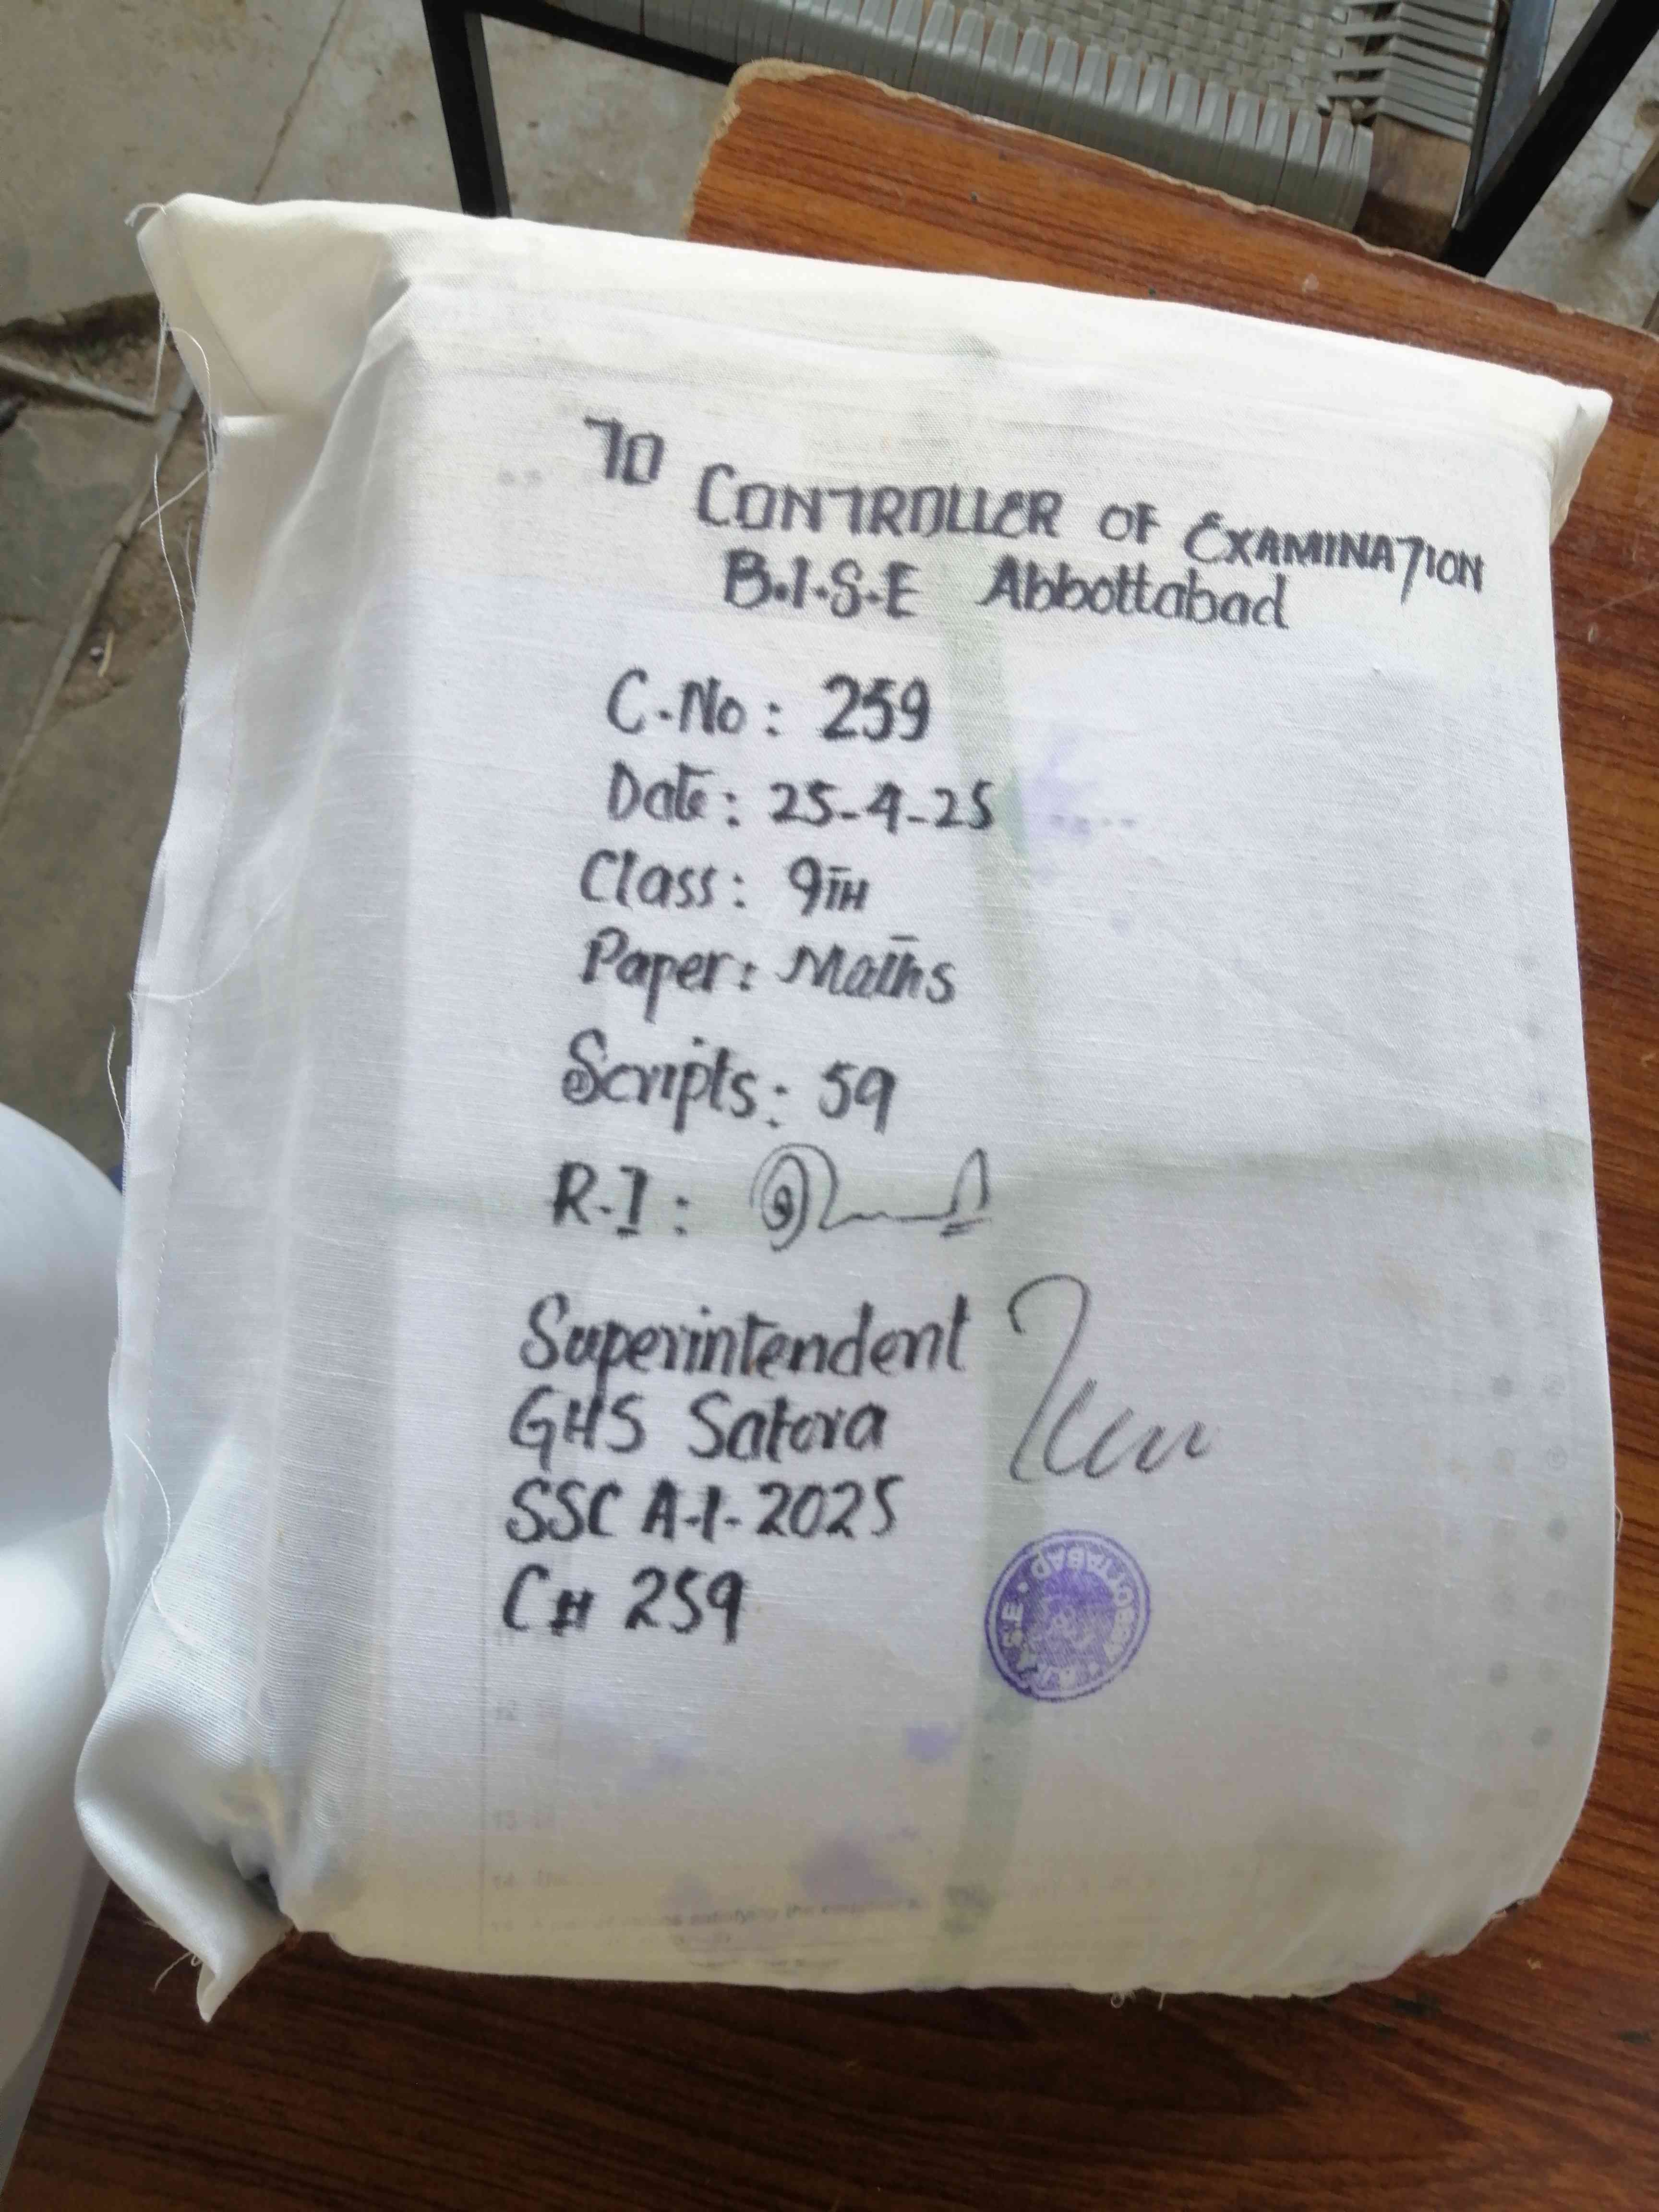 TO
CONTROLLER OF EXAMINATION
B.I.S.E Abbottabad
C.No: 259
Date: 25-4-25
Class: 9TH
Paper: Maths
Scripts: 59
R.I:
Superintendent
GHS Satora
SSC A-I-2025
C# 259
B.I.S.E ABBOTTABAD